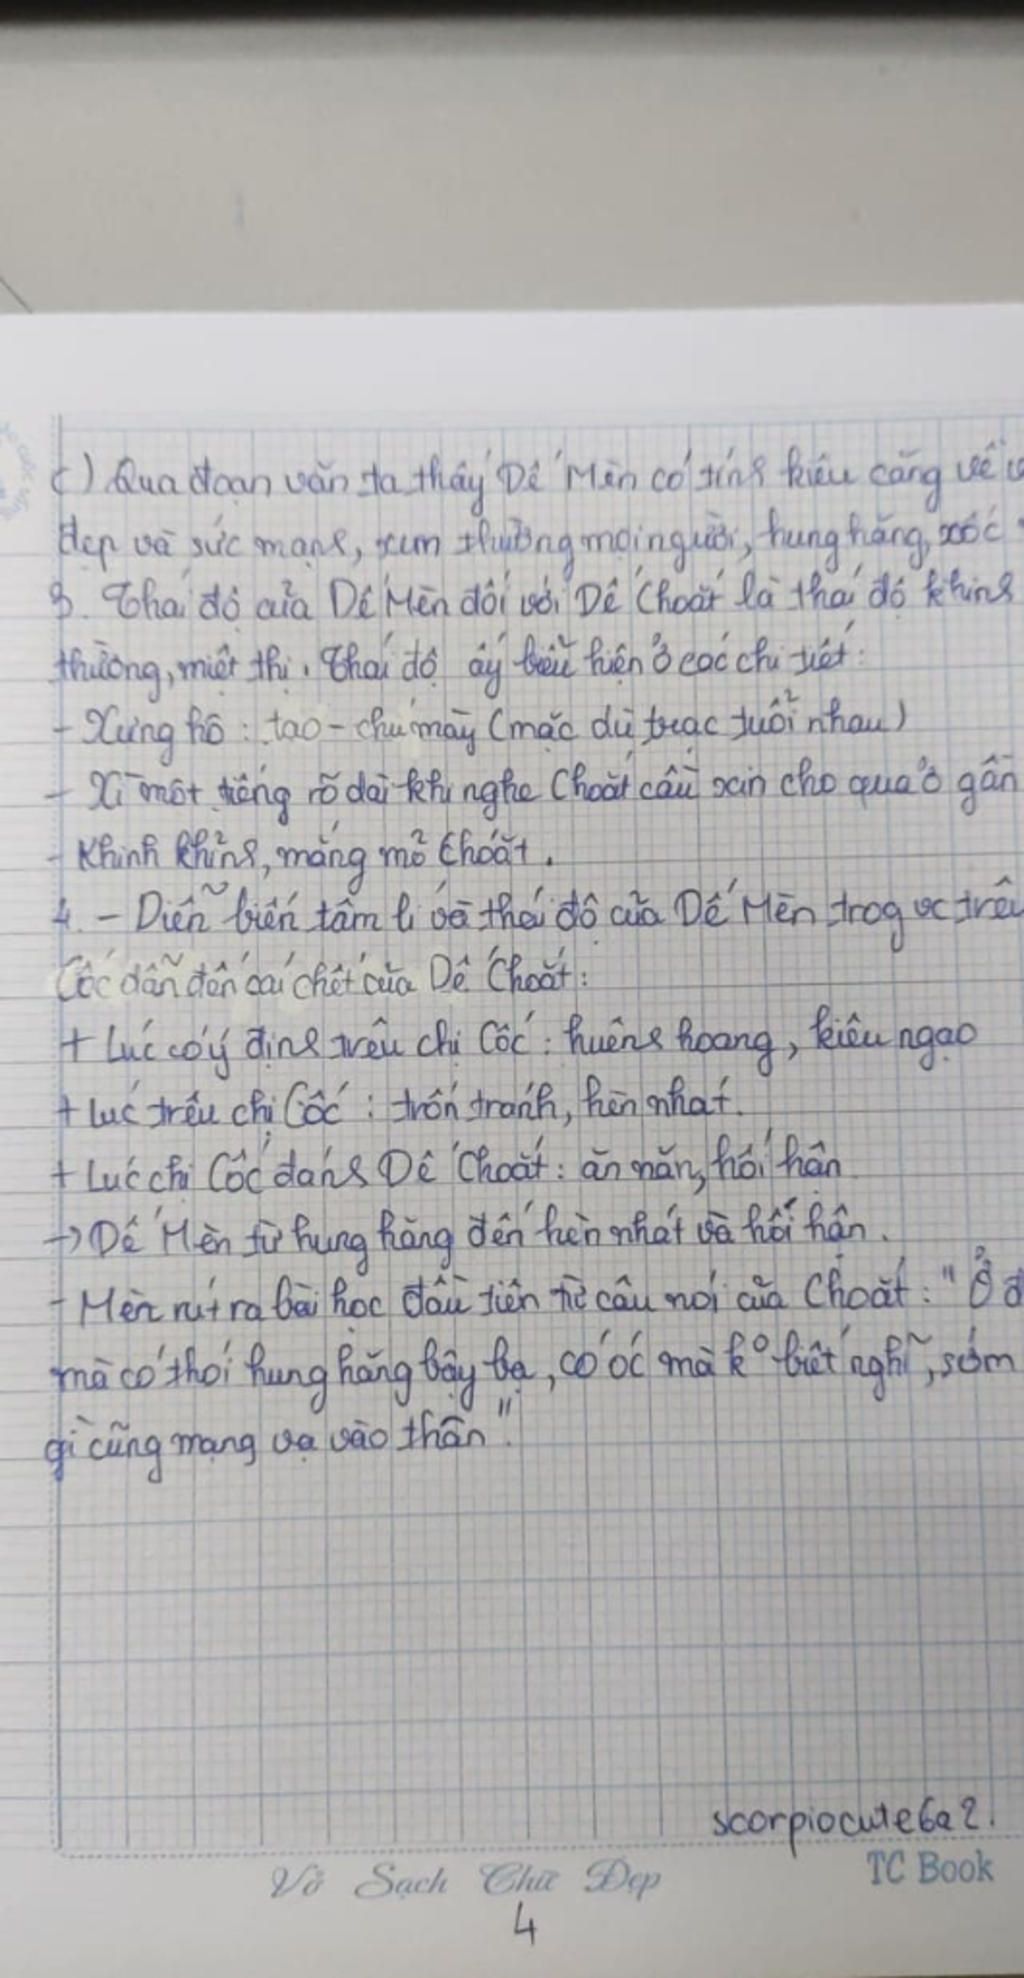 c) Qua đoạn văn ta thấy Dế Mèn có tính kiêu căng về
đẹp và sức mạnh, xem thường mọi người, hung hăng, xốc
3. Thái độ của Dế Mèn đối với Dế Choắt là thái độ khinh
thường, miệt thị. Thái độ ấy biểu hiện ở các chi tiết:
- Xưng hô: tao - chú mày (mặc dù trạc tuổi nhau)
- Xì một tiếng rõ dài khi nghe Choắt cầu xin cho qua ở gần
- Khinh khỉnh, mắng mỏ Choắt.
4. - Diễn biến tâm lí và thái độ của Dế Mèn trog vc trêu
Cốc dẫn đến cái chết của Dế Choắt:
+ Lúc có ý định trêu chị Cốc: huênh hoang, kiêu ngạo
+ Lúc trêu chị Cốc: trốn tránh, hèn nhát.
+ Lúc chị Cốc đánh Dế Choắt: ăn năn, hối hận
-> Dế Mèn từ hung hăng đến hèn nhát và hối hận.
- Mèn rút ra bài học đầu tiên từ câu nói của Choắt: "Ở
mà có thói hung hăng bậy bạ, có óc mà k° biết nghĩ, sớm
gì cũng mạng vạ vào thân".
scorpiocute6a2.
Vở Sạch Chữ Đẹp
TC Book
4